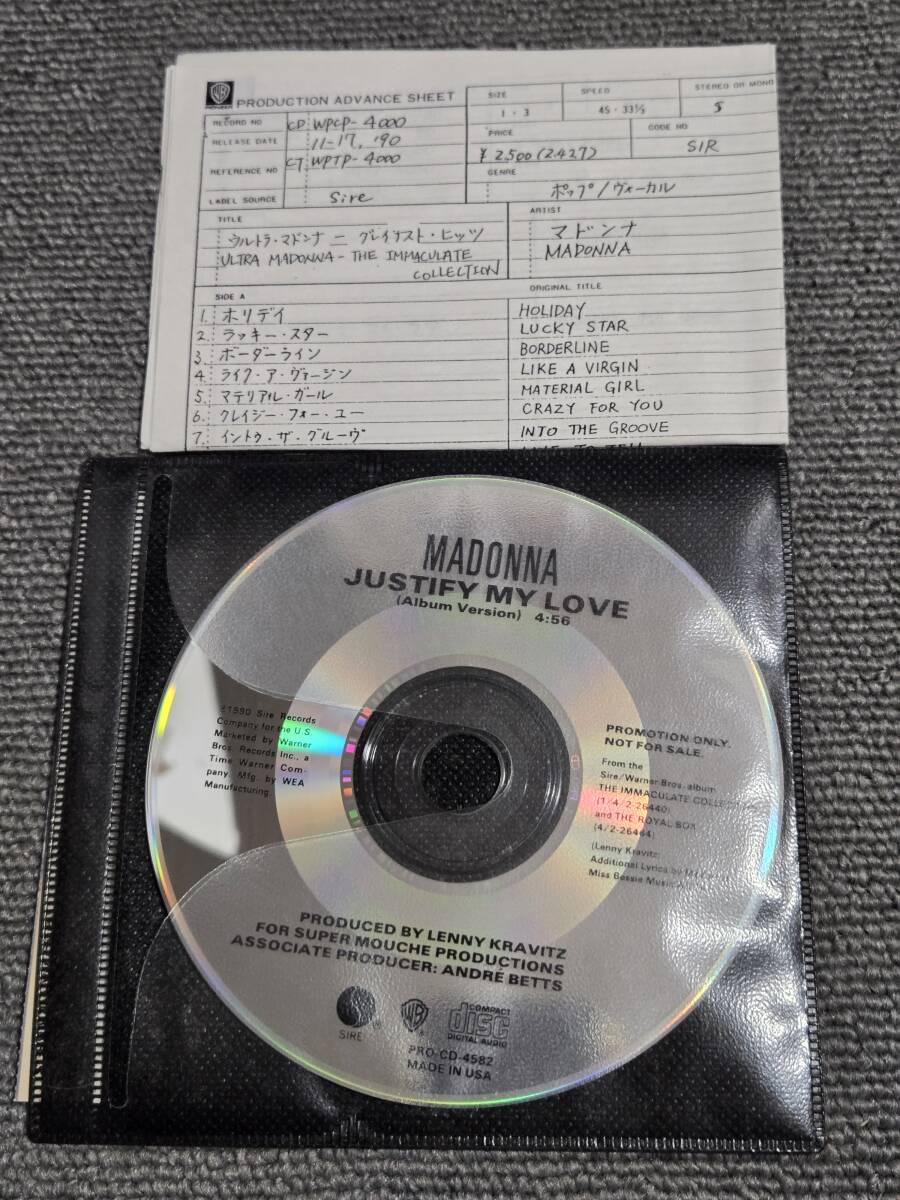 WB
PIONEER
PRODUCTION ADVANCE SHEET
SIZE
SPEED
STEREO OR MONO
1・3
45・33⅓
S
RECORD NO
CD WPCP-4000
PRICE
CODE NO
RELEASE DATE
11-17, '90
¥2,500 (2,427)
SIR
REFERENCE NO
CT WPTP-4000
GENRE
LABEL SOURCE
Sire
ポップ/ヴォーカル
TITLE
ARTIST
ウルトラ・マドンナ ー グレイテスト・ヒッツ
マドンナ
ULTRA MADONNA - THE IMMACULATE
COLLECTION
MADONNA
SIDE A
ORIGINAL TITLE
1. ホリデイ
HOLIDAY
2. ラッキー・スター
LUCKY STAR
3. ボーダーライン
BORDERLINE
4. ライク・ア・ヴァージン
LIKE A VIRGIN
5. マテリアル・ガール
MATERIAL GIRL
6. クレイジー・フォー・ユー
CRAZY FOR YOU
7. イントゥ・ザ・グルーヴ
INTO THE GROOVE
LIVE TO TELL
MADONNA
JUSTIFY MY LOVE
(Album Version) 4:56
℗1990 Sire Records
Company for the U.S.
Marketed by Warner
Bros. Records Inc., a
Time Warner Com-
pany. Mfg. by WEA
Manufacturing.
PROMOTION ONLY.
NOT FOR SALE.
From the
Sire/Warner Bros. album
THE IMMACULATE
(1/4/2-26440)
and THE ROYAL BOX
(4/2-26464)
(Lenny Kravitz
Additional Lyrics by
Miss Bessie Music
PRODUCED BY LENNY KRAVITZ
FOR SUPER MOUCHE PRODUCTIONS
ASSOCIATE PRODUCER: ANDRÉ BETTS
SIRE ®
WB ®
COMPACT
disc
DIGITAL AUDIO
PRO-CD-4582
MADE IN USA